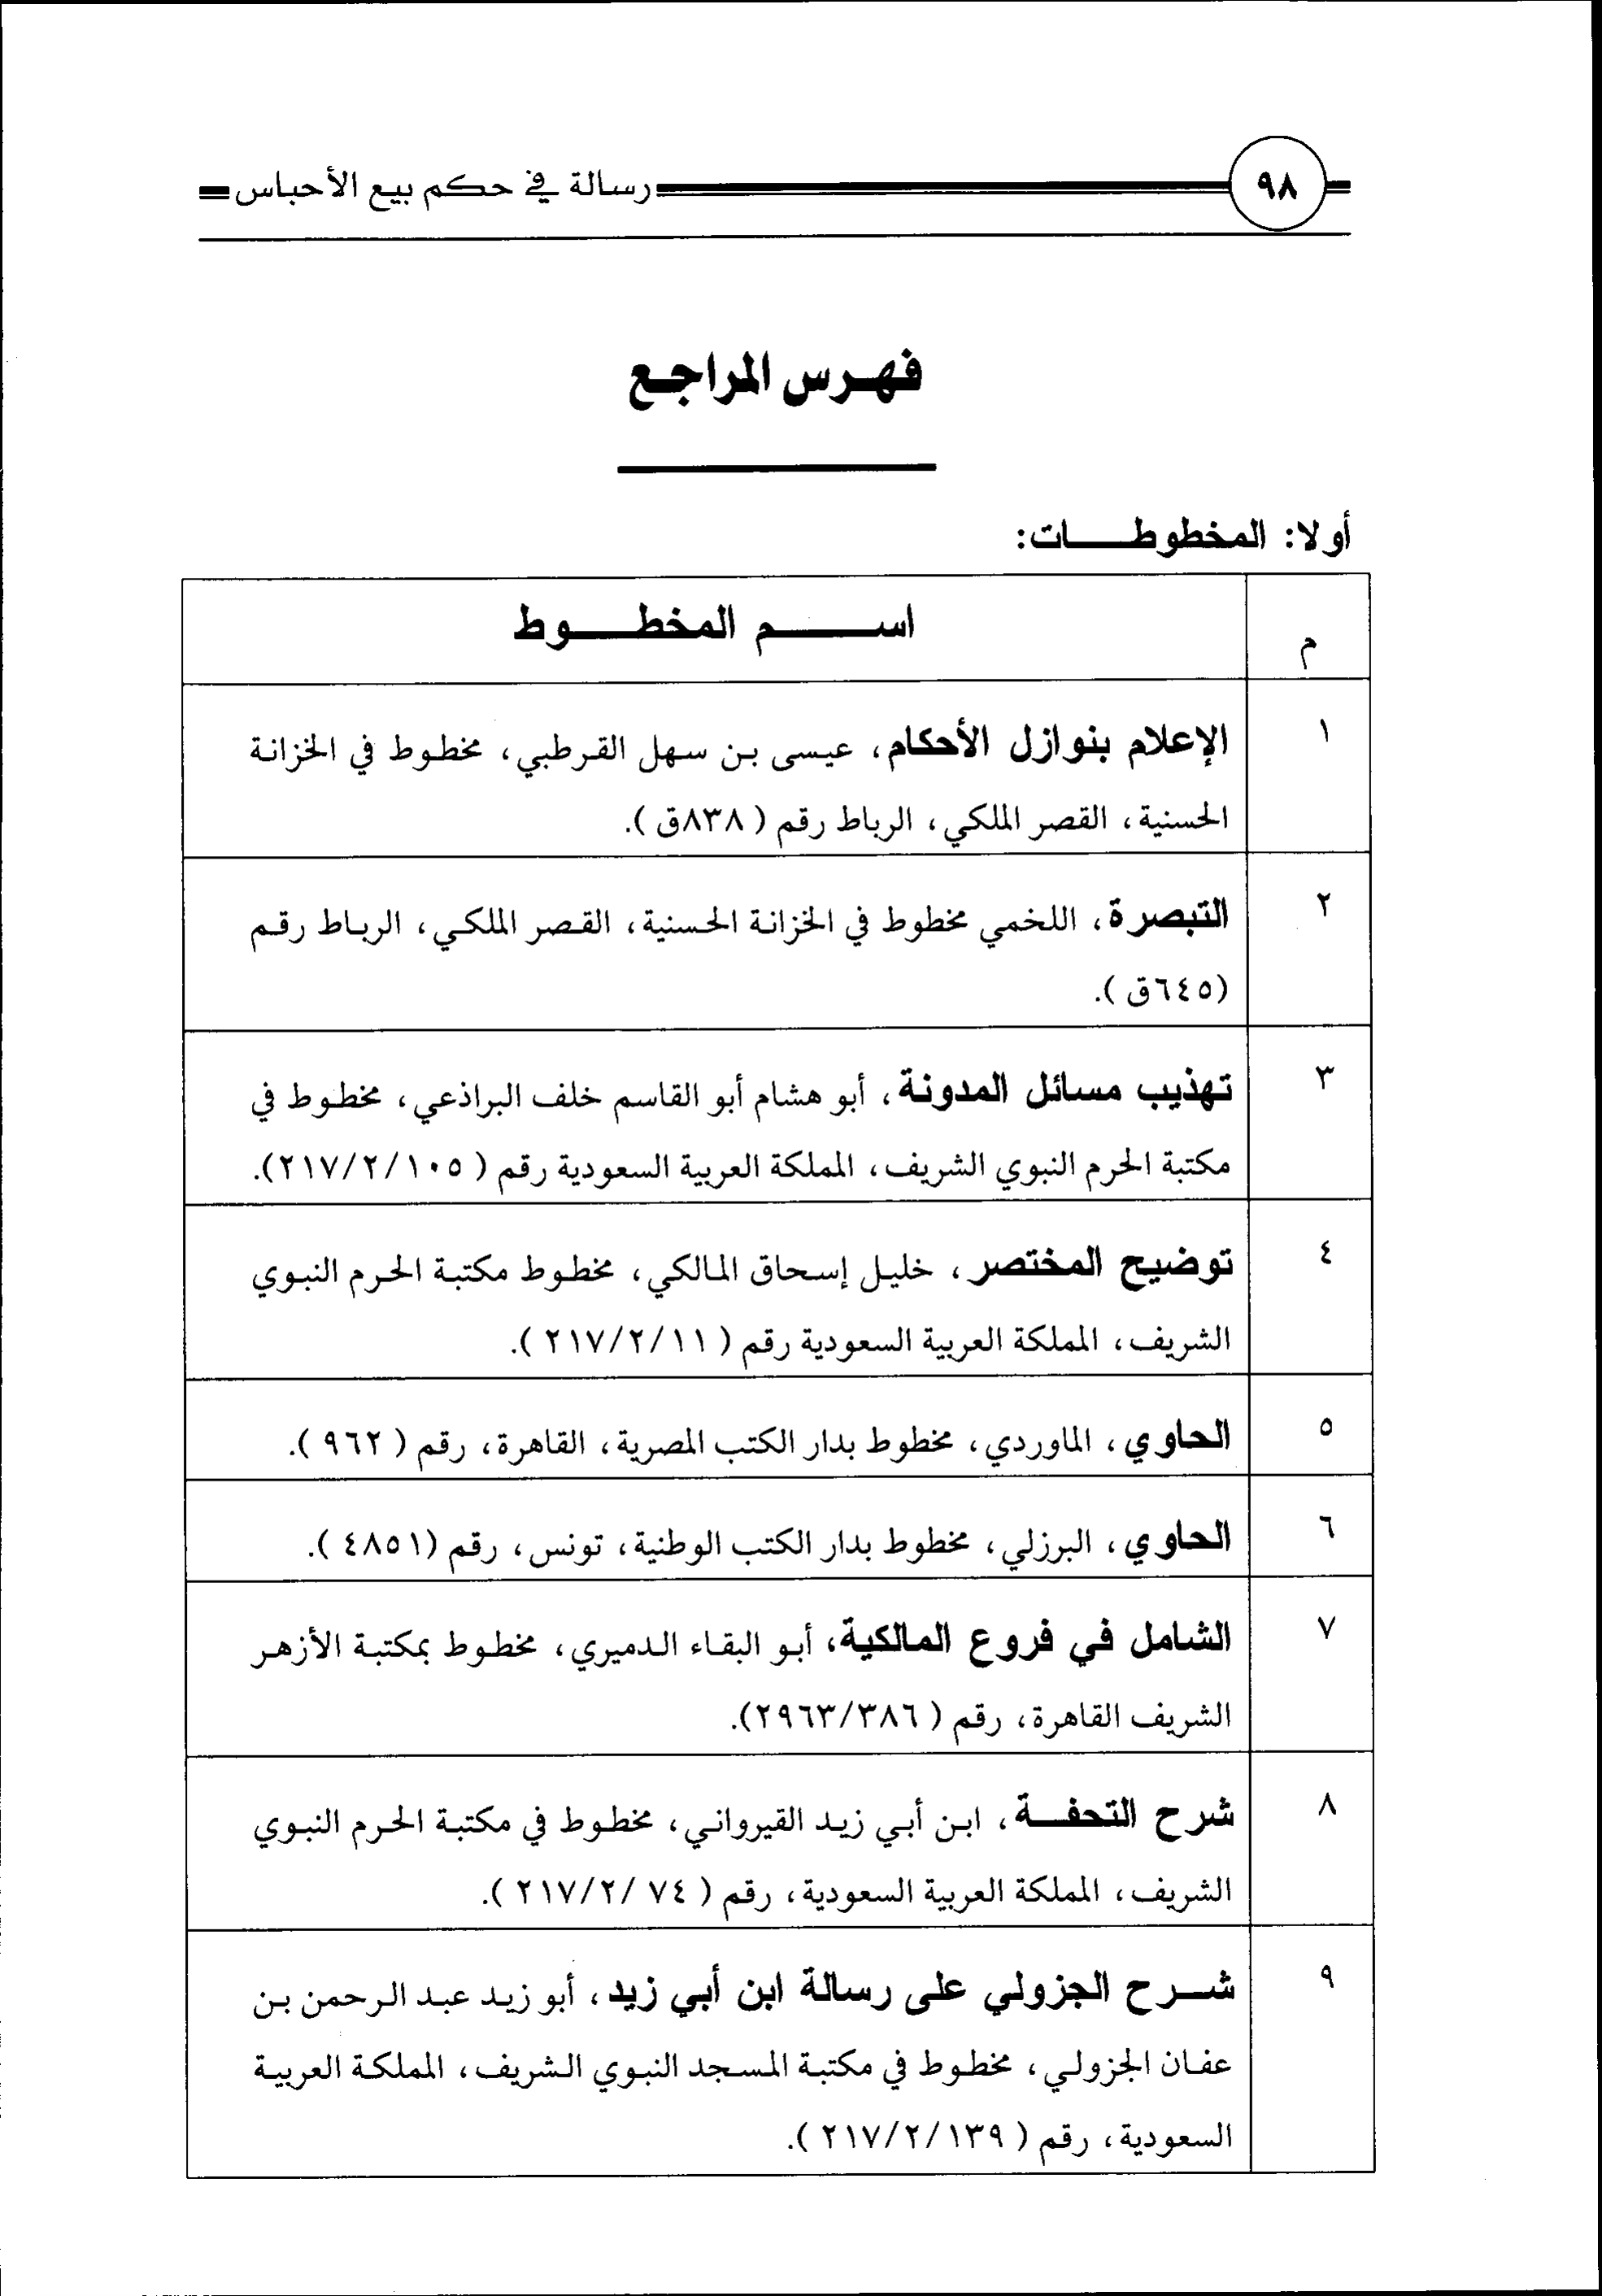 ٩٨ رسالة في حكم بيع الأحباس
فهرس المراجع
أولا: المخطوطات:
م اسم المخطوط
١ الإعلام بنوازل الأحكام، عيسى بن سهل القرطبي، مخطوط في الخزانة
الحسنية، القصر الملكي، الرباط رقم ( ٨٣٨ق ).
٢ التبصرة، اللخمي مخطوط في الخزانة الحسنية، القصر الملكي، الرباط رقم
(٦٤٥ق ).
٣ تهذيب مسائل المدونة، أبو هشام أبو القاسم خلف البراذعي، مخطوط في
مكتبة الحرم النبوي الشريف، المملكة العربية السعودية رقم ( ٢١٧/٢/١٠٥).
٤ توضيح المختصر، خليل إسحاق المالكي، مخطوط مكتبة الحرم النبوي
الشريف، المملكة العربية السعودية رقم ( ٢١٧/٢/١١ ).
٥ الحاوي، الماوردي، مخطوط بدار الكتب المصرية، القاهرة، رقم ( ٩٦٢ ).
٦ الحاوي، البرزلي، مخطوط بدار الكتب الوطنية، تونس، رقم (٤٨٥١ ).
٧ الشامل في فروع المالكية، أبو البقاء الدميري، مخطوط بمكتبة الأزهر
الشريف القاهرة، رقم ( ٢٩٦٣/٣٨٦).
٨ شرح التحفة، ابن أبي زيد القيرواني، مخطوط في مكتبة الحرم النبوي
الشريف، المملكة العربية السعودية، رقم ( ٢١٧/٢/ ٧٤ ).
٩ شرح الجزولي على رسالة ابن أبي زيد، أبو زيد عبد الرحمن بن
عفان الجزولي، مخطوط في مكتبة المسجد النبوي الشريف، المملكة العربية
السعودية، رقم ( ٢١٧/٢/١٣٩ ).